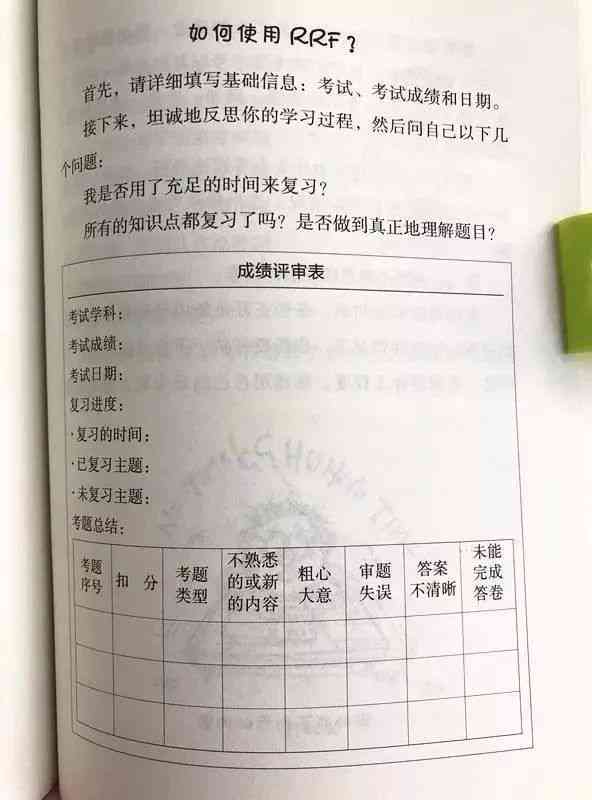 如何使用RRF？
首先，请详细填写基础信息：考试、考试成绩和日期。
接下来，坦诚地反思你的学习过程，然后问自己以下几
个问题：
我是否用了充足的时间来复习？
所有的知识点都复习了吗？是否做到真正地理解题目？
成绩评审表
考试学科：
考试成绩：
考试日期：
复习进度：
·复习的时间：
·已复习主题：
·未复习主题：
考题总结：
考题
序号
扣 分
考题
类型
不熟悉
的或新
的内容
粗心
大意
审题
失误
答案
不清晰
未能
完成
答卷